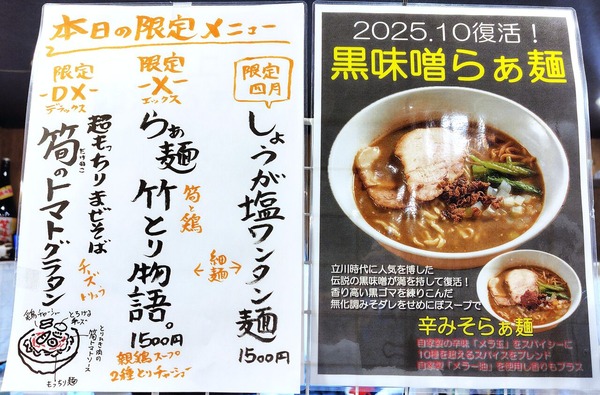 本日の限定メニュー
限定
四月
しょうが塩ワンタン麺
1500円
限定
-X-
エックス
らぁ麺 竹とり物語。
筍と鶏
←細麺→
1500円
親鶏スープ
2種とりチャーシュー
限定
-DX-
デラックス
超もっちりまぜそば
筍のトマトグラタン
たけのこ
チーズ
トリュフ
鶏チャーシュー
とろける
チーズ
とりひき肉の
筍トマトソース
もっちり麺
2025.10復活!
黒味噌らぁ麺
立川時代に人気を博した
伝説の黒味噌が満を持して復活!
香り高い黒ゴマを練りこんだ
無化調みそダレをせめにぼスープで
辛みそらぁ麺
自家製の辛味「メラ玉」をスパイシーに
10種を超えるスパイスをブレンド
自家製「メラー油」を使用し香りもプラス